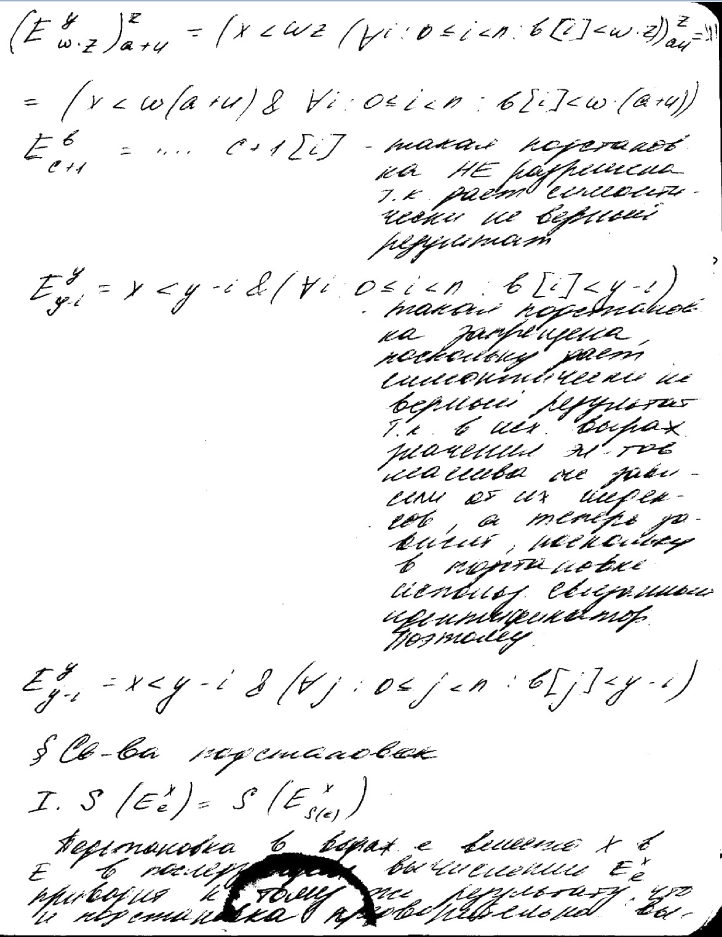 (E^y_{w·z})^z_{a+u} = (x < wz (∀i : 0 ≤ i < n : b[i] < w·z))^z_{au} =
= (x < w(a+u) & ∀i : 0 ≤ i < n : b[i] < w·(a+u))
E^b_{c+1} = .... c+1[i] - такая подстанов
ка НЕ разрешена
т.к. даст симонти-
чески не верный
результат
E^y_{y-i} = x < y - i & (∀i : 0 ≤ i < n : b[i] < y - i)
- такая подстанов-
ка запрещена,
поскольку даст
симонтически не
верный результат
т.к. в исх. выраж.
значения эл-тов
массива не зави-
сили от их индек-
сов, а теперь за-
висит, поскольку
в подстановке
использ. связанный
идентификатор.
Поэтому
E^y_{y-i} = x < y - i & (∀j : 0 ≤ j < n : b[j] < y - i)
§ Св-ва подстановок
I. S(E^x_e) = S(E^x_{S(e)})
Подстановка в выраж e вместо x в
E в вычислении E^x_e
приводит к тому же результату, что
и подстановка предварительно вы-